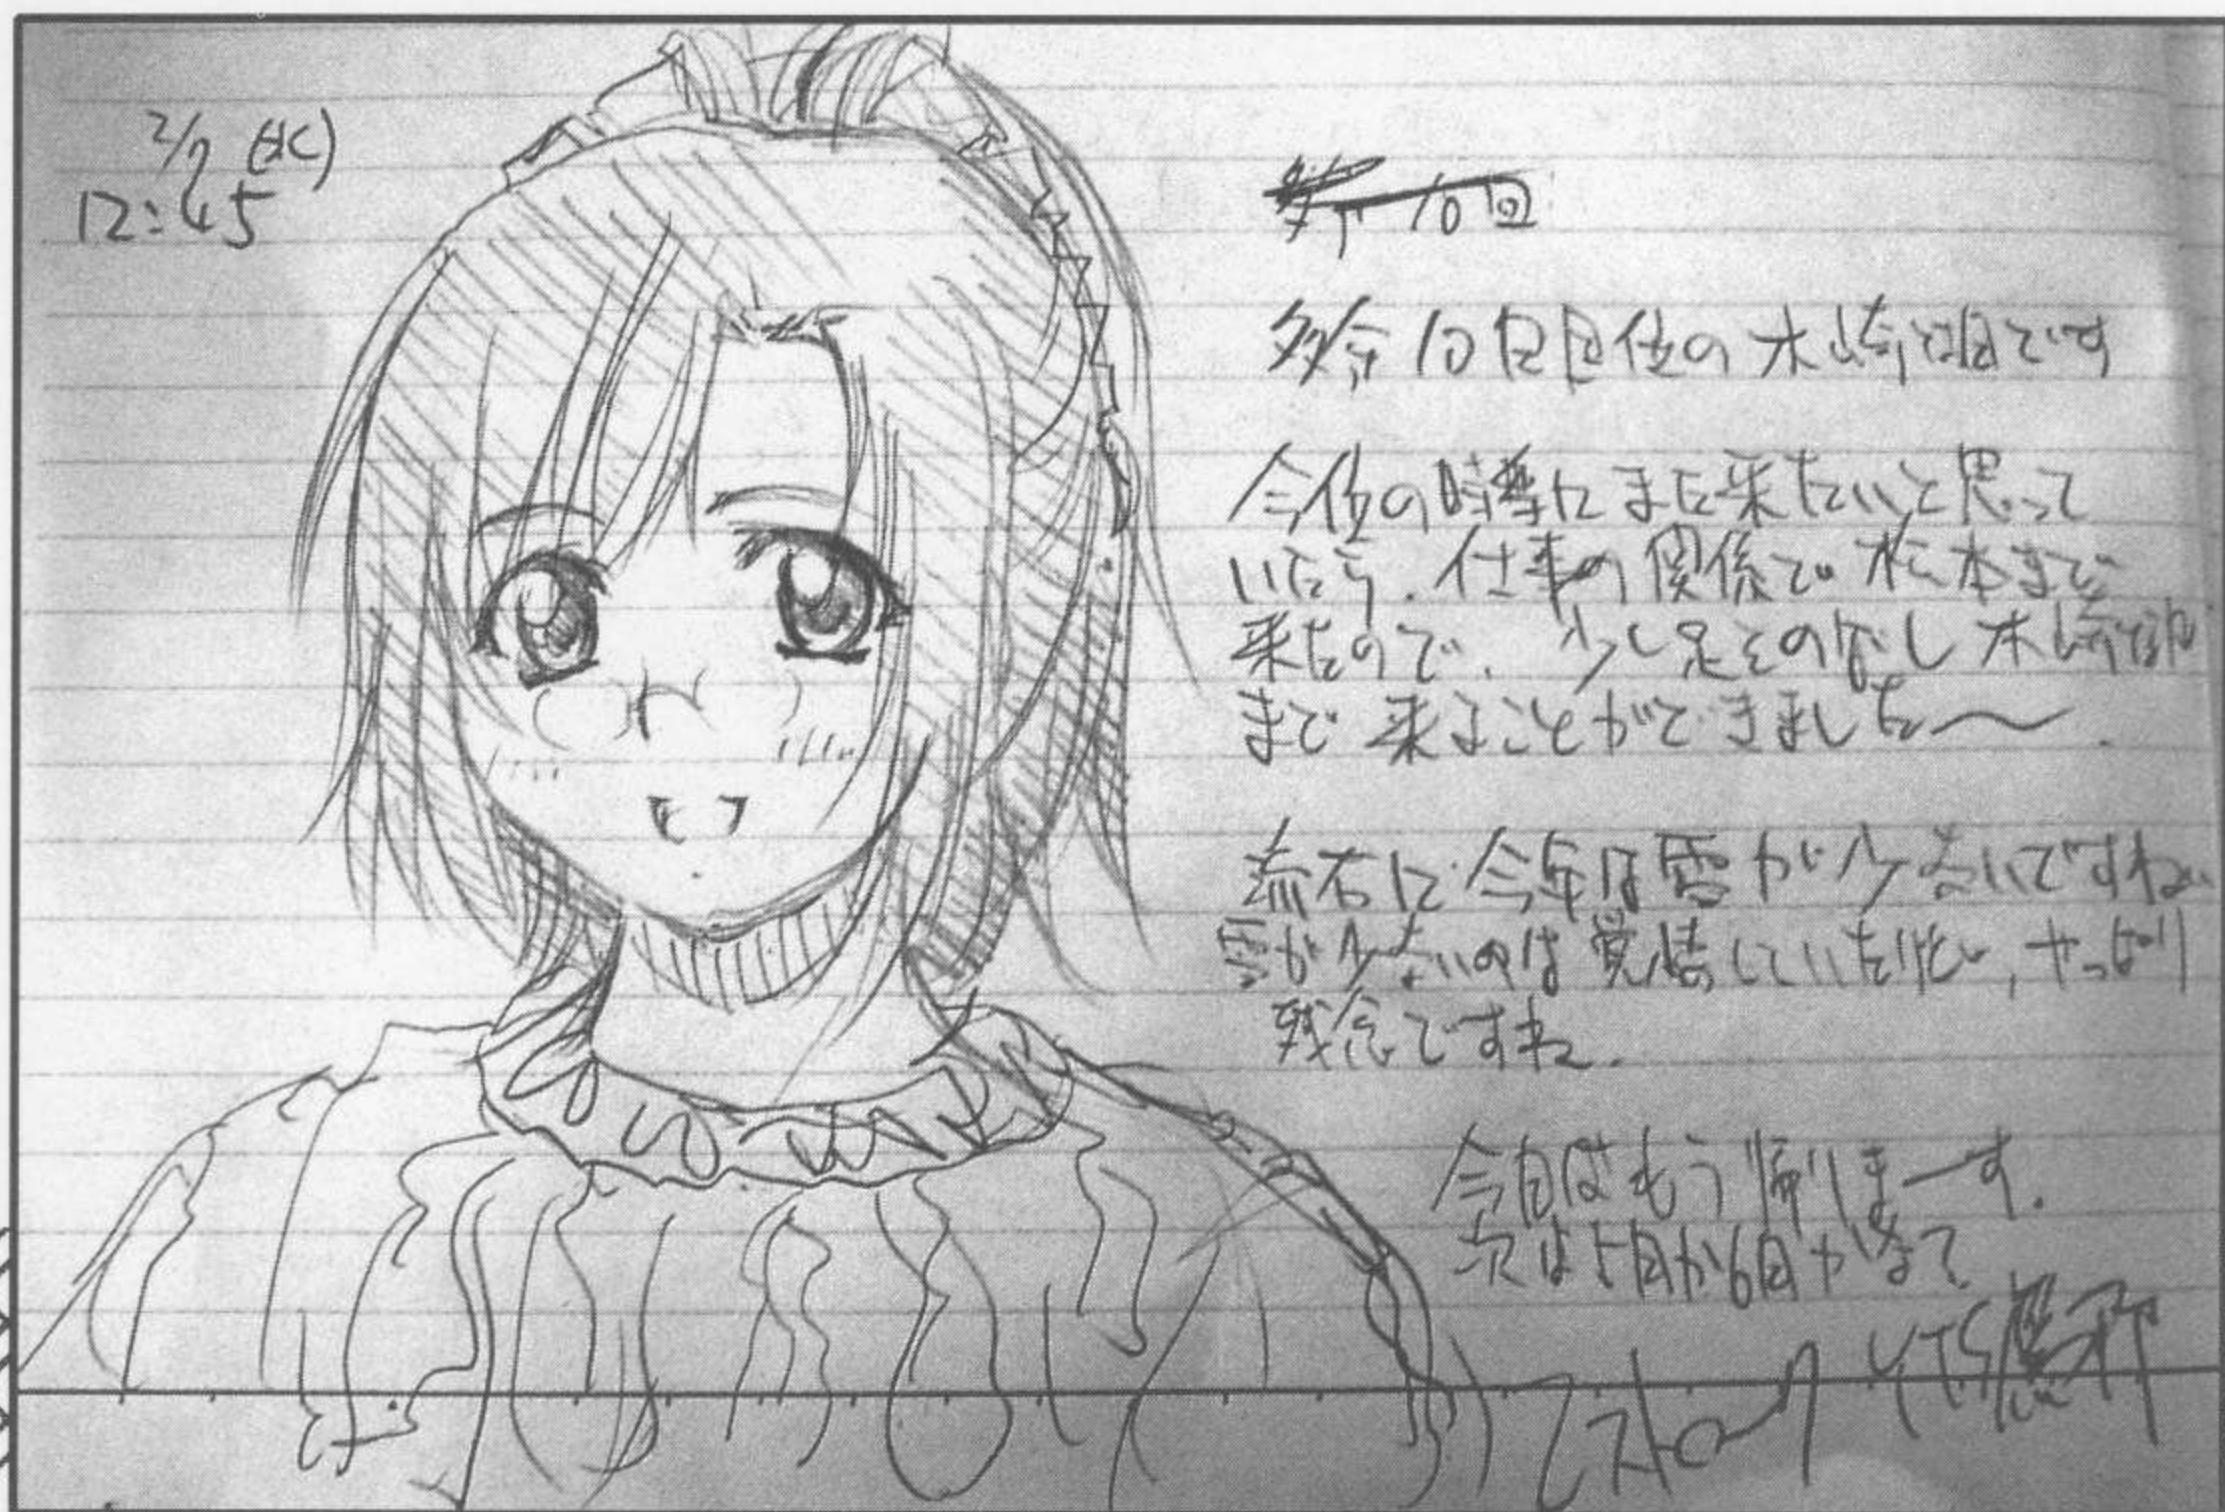 2/7 (水)
12:45
第10回
多分10回目位の木崎湖です
今位の時季にまた来たいと思って
いたら、仕事の関係で松本まで
来たので、少し足をのばし木崎湖
まで来ることができました〜.
流石に今年は雪が少ないですね
雪が少ないのは覚悟していたけど、やっぱり
残念ですね.
今日はもう帰りまーす.
次は5月か6月かなって